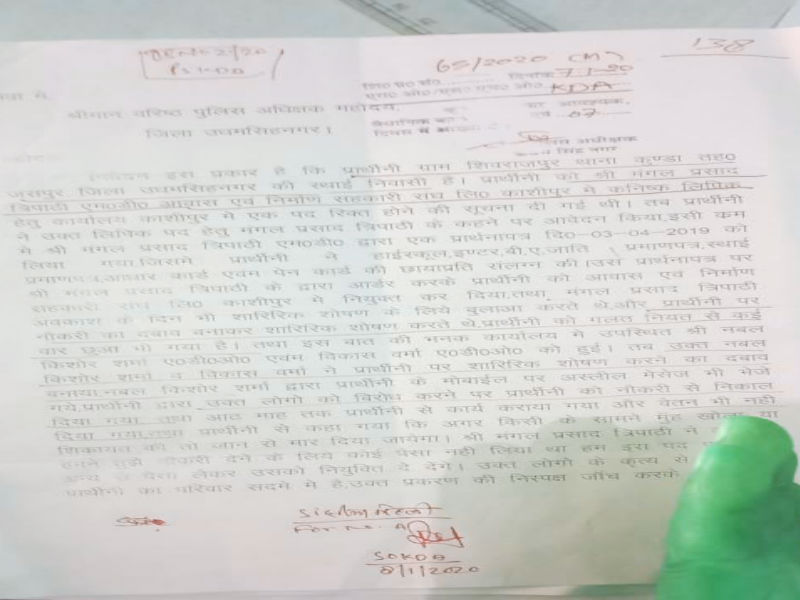 138
65/2020 (M)
दिनांक 7.1.20
KDA
श्रीमान वरिष्ठ पुलिस अधिक्षक महोदय,
जिला उधमसिहनगर।
निवेदन इस प्रकार है कि प्रार्थीनी ग्राम शिवराजपुर थाना कुण्डा तह०
जसपुर जिला उधमसिहनगर की स्थाई निवासी है। प्रार्थीनी को श्री मंगल प्रसाद
त्रिपाठी एम०डी० आवास एवं निर्माण सहकारी संघ लि० काशीपुर मे कनिष्क लिपिक
हेतु कार्यालय काशीपुर मे एक पद रिक्त होने की सूचना दी गई थी। तब प्रार्थीनी
ने उक्त लिपिक पद हेतु मंगल प्रसाद त्रिपाठी के कहने पर आवेदन किया,इसी कम
मे श्री मंगल प्रसाद त्रिपाठी एम०डी० द्वारा एक प्रार्थनापत्र दि०-03-04-2019 को
लिया गया,जिसमे प्रार्थीनी ने हाईस्कूल,इण्टर,बी.ए,जाति प्रमाणपत्र,स्थाई
प्रमाणपत्र,आधार कार्ड एवम पेन कार्ड की छायाप्रति संलग्न की।उस प्रार्थनापत्र पर
श्री मंगल प्रसाद त्रिपाठी के द्वारा आर्डर करके प्रार्थीनी को आवास एवं निर्माण
सहकारी संघ लि० काशीपुर मे नियुक्त कर दिया,तथा मंगल प्रसाद त्रिपाठी
अवकाश के दिन भी शारिरिक शोषण के लिये बुलाआ करते थे,और प्रार्थीनी पर
नौकरी का दबाव बनाकर शारिरिक शोषण करते थे,प्रार्थीनी को गलत नियत से कई
वार छुआ भी गया है। तथा इस बात की भनक कार्यालय मे उपस्थित श्री नबल
किशोर शर्मा ए०डी०ओ० एवम विकास वर्मा ए०डी०ओ० को हुई। तब उक्त नबल
किशोर शर्मा व विकास वर्मा ने प्रार्थीनी पर शारिरिक शोषण करने का दबाव
बनाया,नबल किशोर शर्मा द्वारा प्रार्थीनी के मोबाईल पर अस्लील मेसेज भी भेजे
गये,प्रार्थीनी द्वारा उक्त लोगो को विरोध करने पर प्रार्थीनी को नौकरी से निकाल
दिया गया तथा आठ माह तक प्रार्थीनी से कार्य कराया गया और वेतन भी नही
दिया गया,तथा प्रार्थीनी से कहा गया कि अगर किसी के सामने मुंह खोला या
शिकायत की तो जान से मार दिया जायेगा। श्री मंगल प्रसाद त्रिपाठी ने
हमने तुझे नौकरी देने के लिये कोई पैसा नही लिया था हम इस पद
अन्य से पैसा लेकर उसको नियुक्ति दे देगे। उक्त लोगो के कृत्य से
प्रार्थीनी का परिवार सदमे मे है,उक्त प्रकरण की निस्पक्ष जाँच करके
SOKDA
8/1/2020